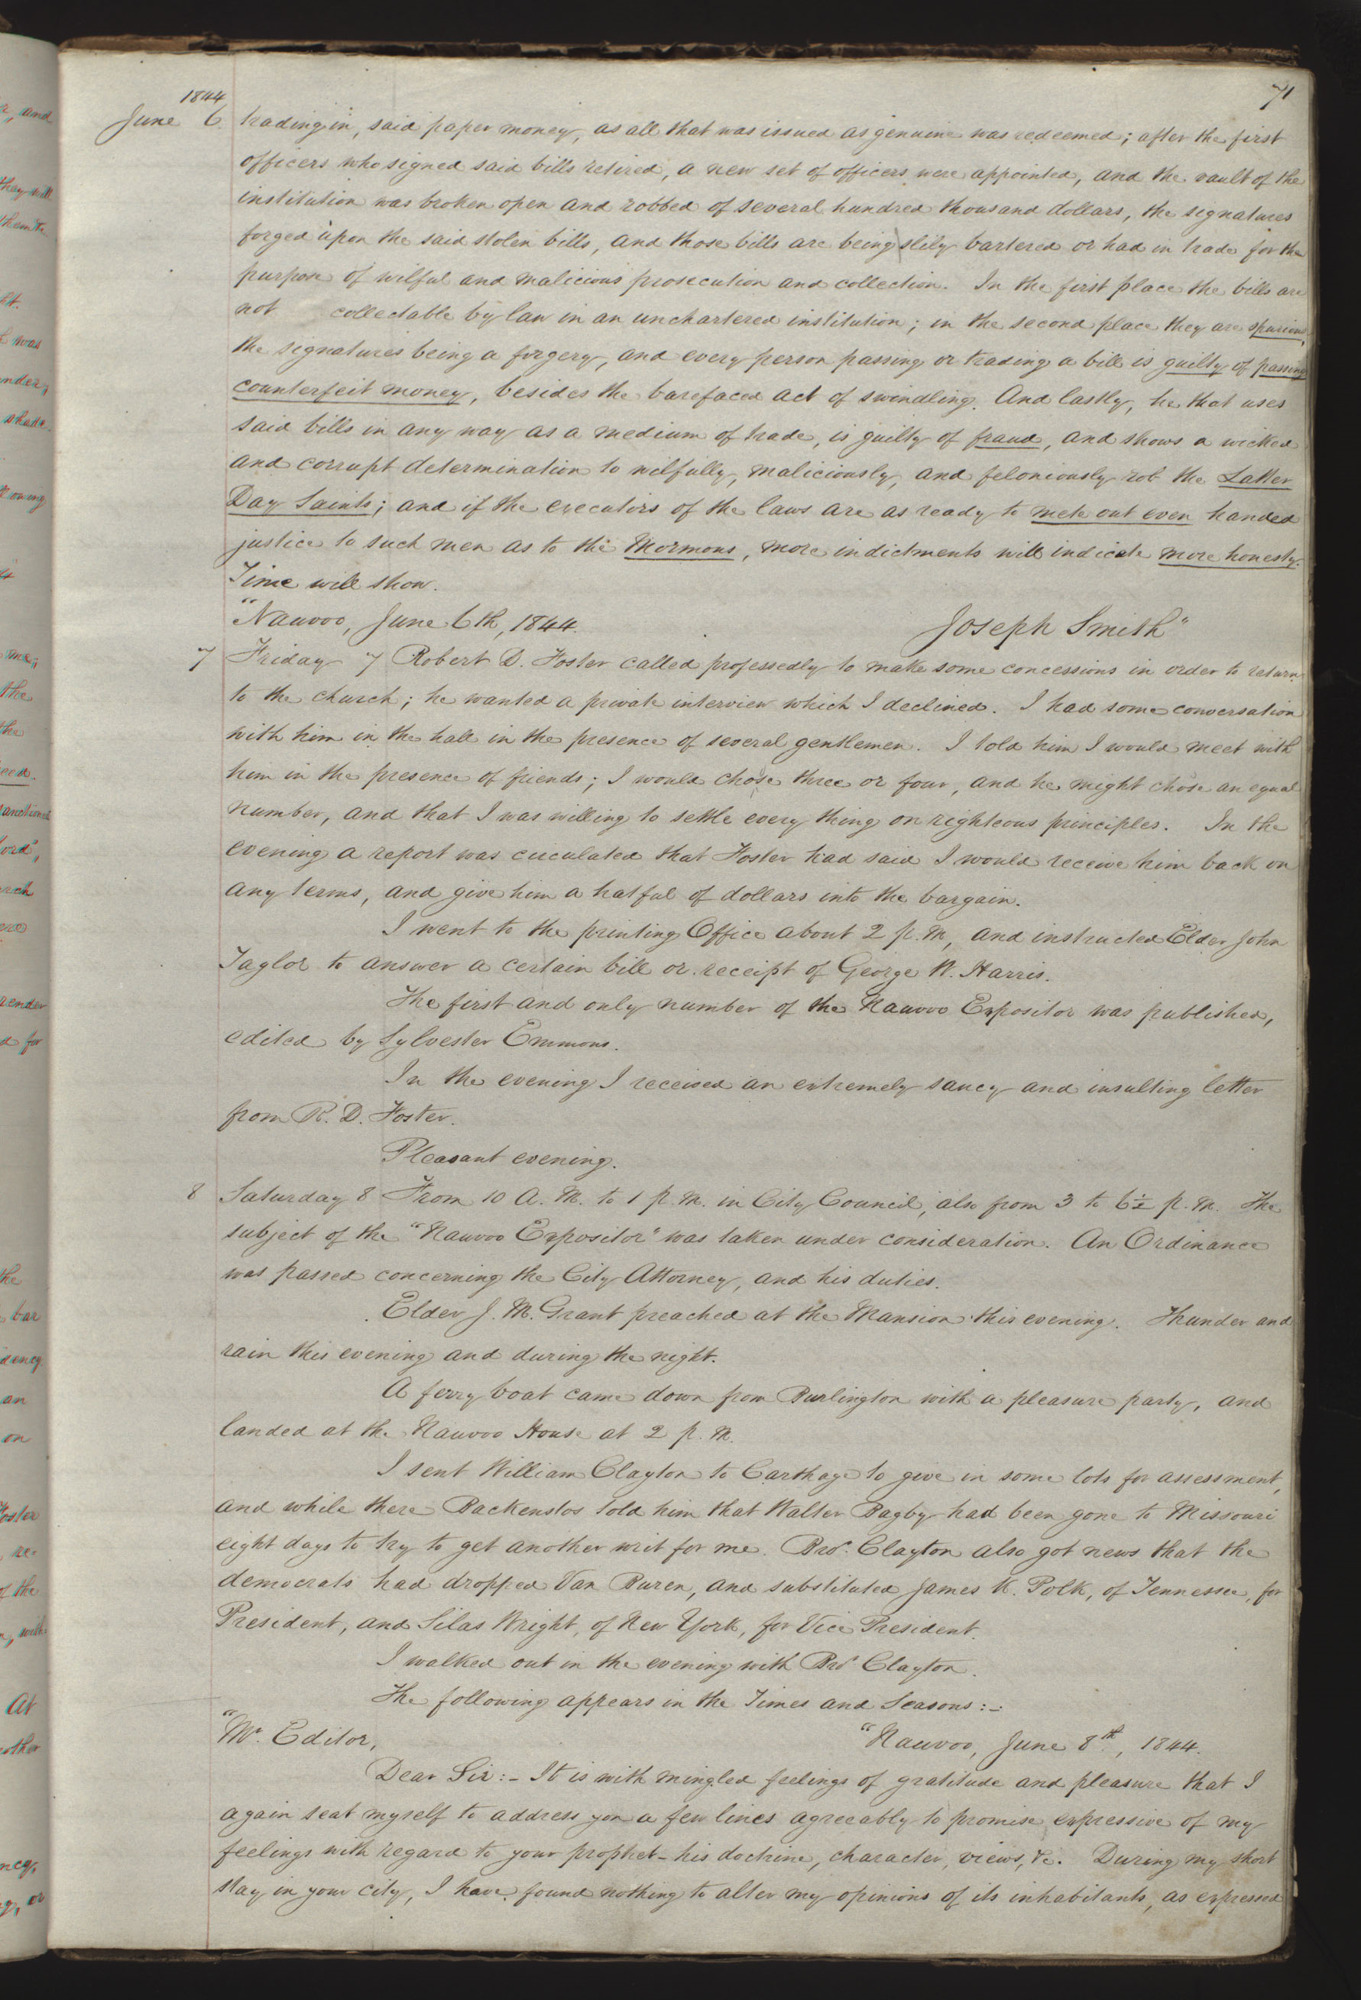 71
1844
June 6. trading in, said paper money, as all that was issued as genuine was redeemed; after the first
officers who signed said bills retired, a new set of officers were appointed, and the vault of the
institution was broken open and robbed of several hundred thousand dollars, the signatures
forged upon the said stolen bills, and those bills are being slily bartered or had in trade for the
purpose of wilful and malicious prosecution and collection. In the first place the bills are
not collectable by law in an unchartered institution; in the second place they are spurious,
the signatures being a forgery, and every person passing or trading a bill is guilty of passing
counterfeit money, besides the barefaced act of swindling. And lastly, he that uses
said bills in any way as a medium of trade, is guilty of fraud, and shows a wicked
and corrupt determination to wilfully, maliciously, and feloniously rob the Latter
Day Saints; and if the executors of the laws are as ready to mete out even handed
justice to such men as to the Mormons, more indictments will indicate more honesty.
Time will show.
"Nauvoo, June 6th, 1844. Joseph Smith"
7 Friday 7 Robert D. Foster called professedly to make some concessions in order to return
to the church; he wanted a private interview which I declined. I had some conversation
with him in the hall in the presence of several gentlemen. I told him I would meet with
him in the presence of friends; I would chose three or four, and he might chose an equal
number, and that I was willing to settle every thing on righteous principles. In the
evening a report was circulated that Foster had said I would receive him back on
any terms, and give him a hatful of dollars into the bargain.
I went to the printing Office about 2 p.m, and instructed Elder John
Taylor to answer a certain bill or receipt of George W. Harris.
The first and only number of the Nauvoo Expositor was published,
edited by Sylvester Emmons.
In the evening I received an extremely saucy and insulting letter
from R. D. Foster.
Pleasant evening.
8 Saturday 8 From 10 A. M. to 1 p. m. in City Council, also from 3 to 6½ p. m. The
subject of the "Nauvoo Expositor" was taken under consideration. An Ordinance
was passed concerning the City Attorney, and his duties.
Elder J. M. Grant preached at the Mansion this evening. Thunder and
rain this evening and during the night.
A ferry boat came down from Burlington with a pleasure party, and
landed at the Nauvoo House at 2 p. m.
I sent William Clayton to Carthage to give in some lots for assessment,
and while there Backenstos told him that Walter Bagby had been gone to Missouri
eight days to try to get another writ for me. Bro. Clayton also got news that the
democrats had dropped Van Buren, and substituted James K. Polk, of Tennessee, for
President, and Silas Wright, of New York, for Vice President.
I walked out in the evening with Bro. Clayton.
The following appears in the Times and Seasons:–
"Mr. Editor, "Nauvoo, June 8th, 1844.
Dear Sir:– It is with mingled feelings of gratitude and pleasure that I
again seat myself to address you a few lines agreeably to promise expressive of my
feelings with regard to your prophet – his doctrine, character, views, &c. During my short
stay in your city, I have found nothing to alter my opinions of its inhabitants, as expressed